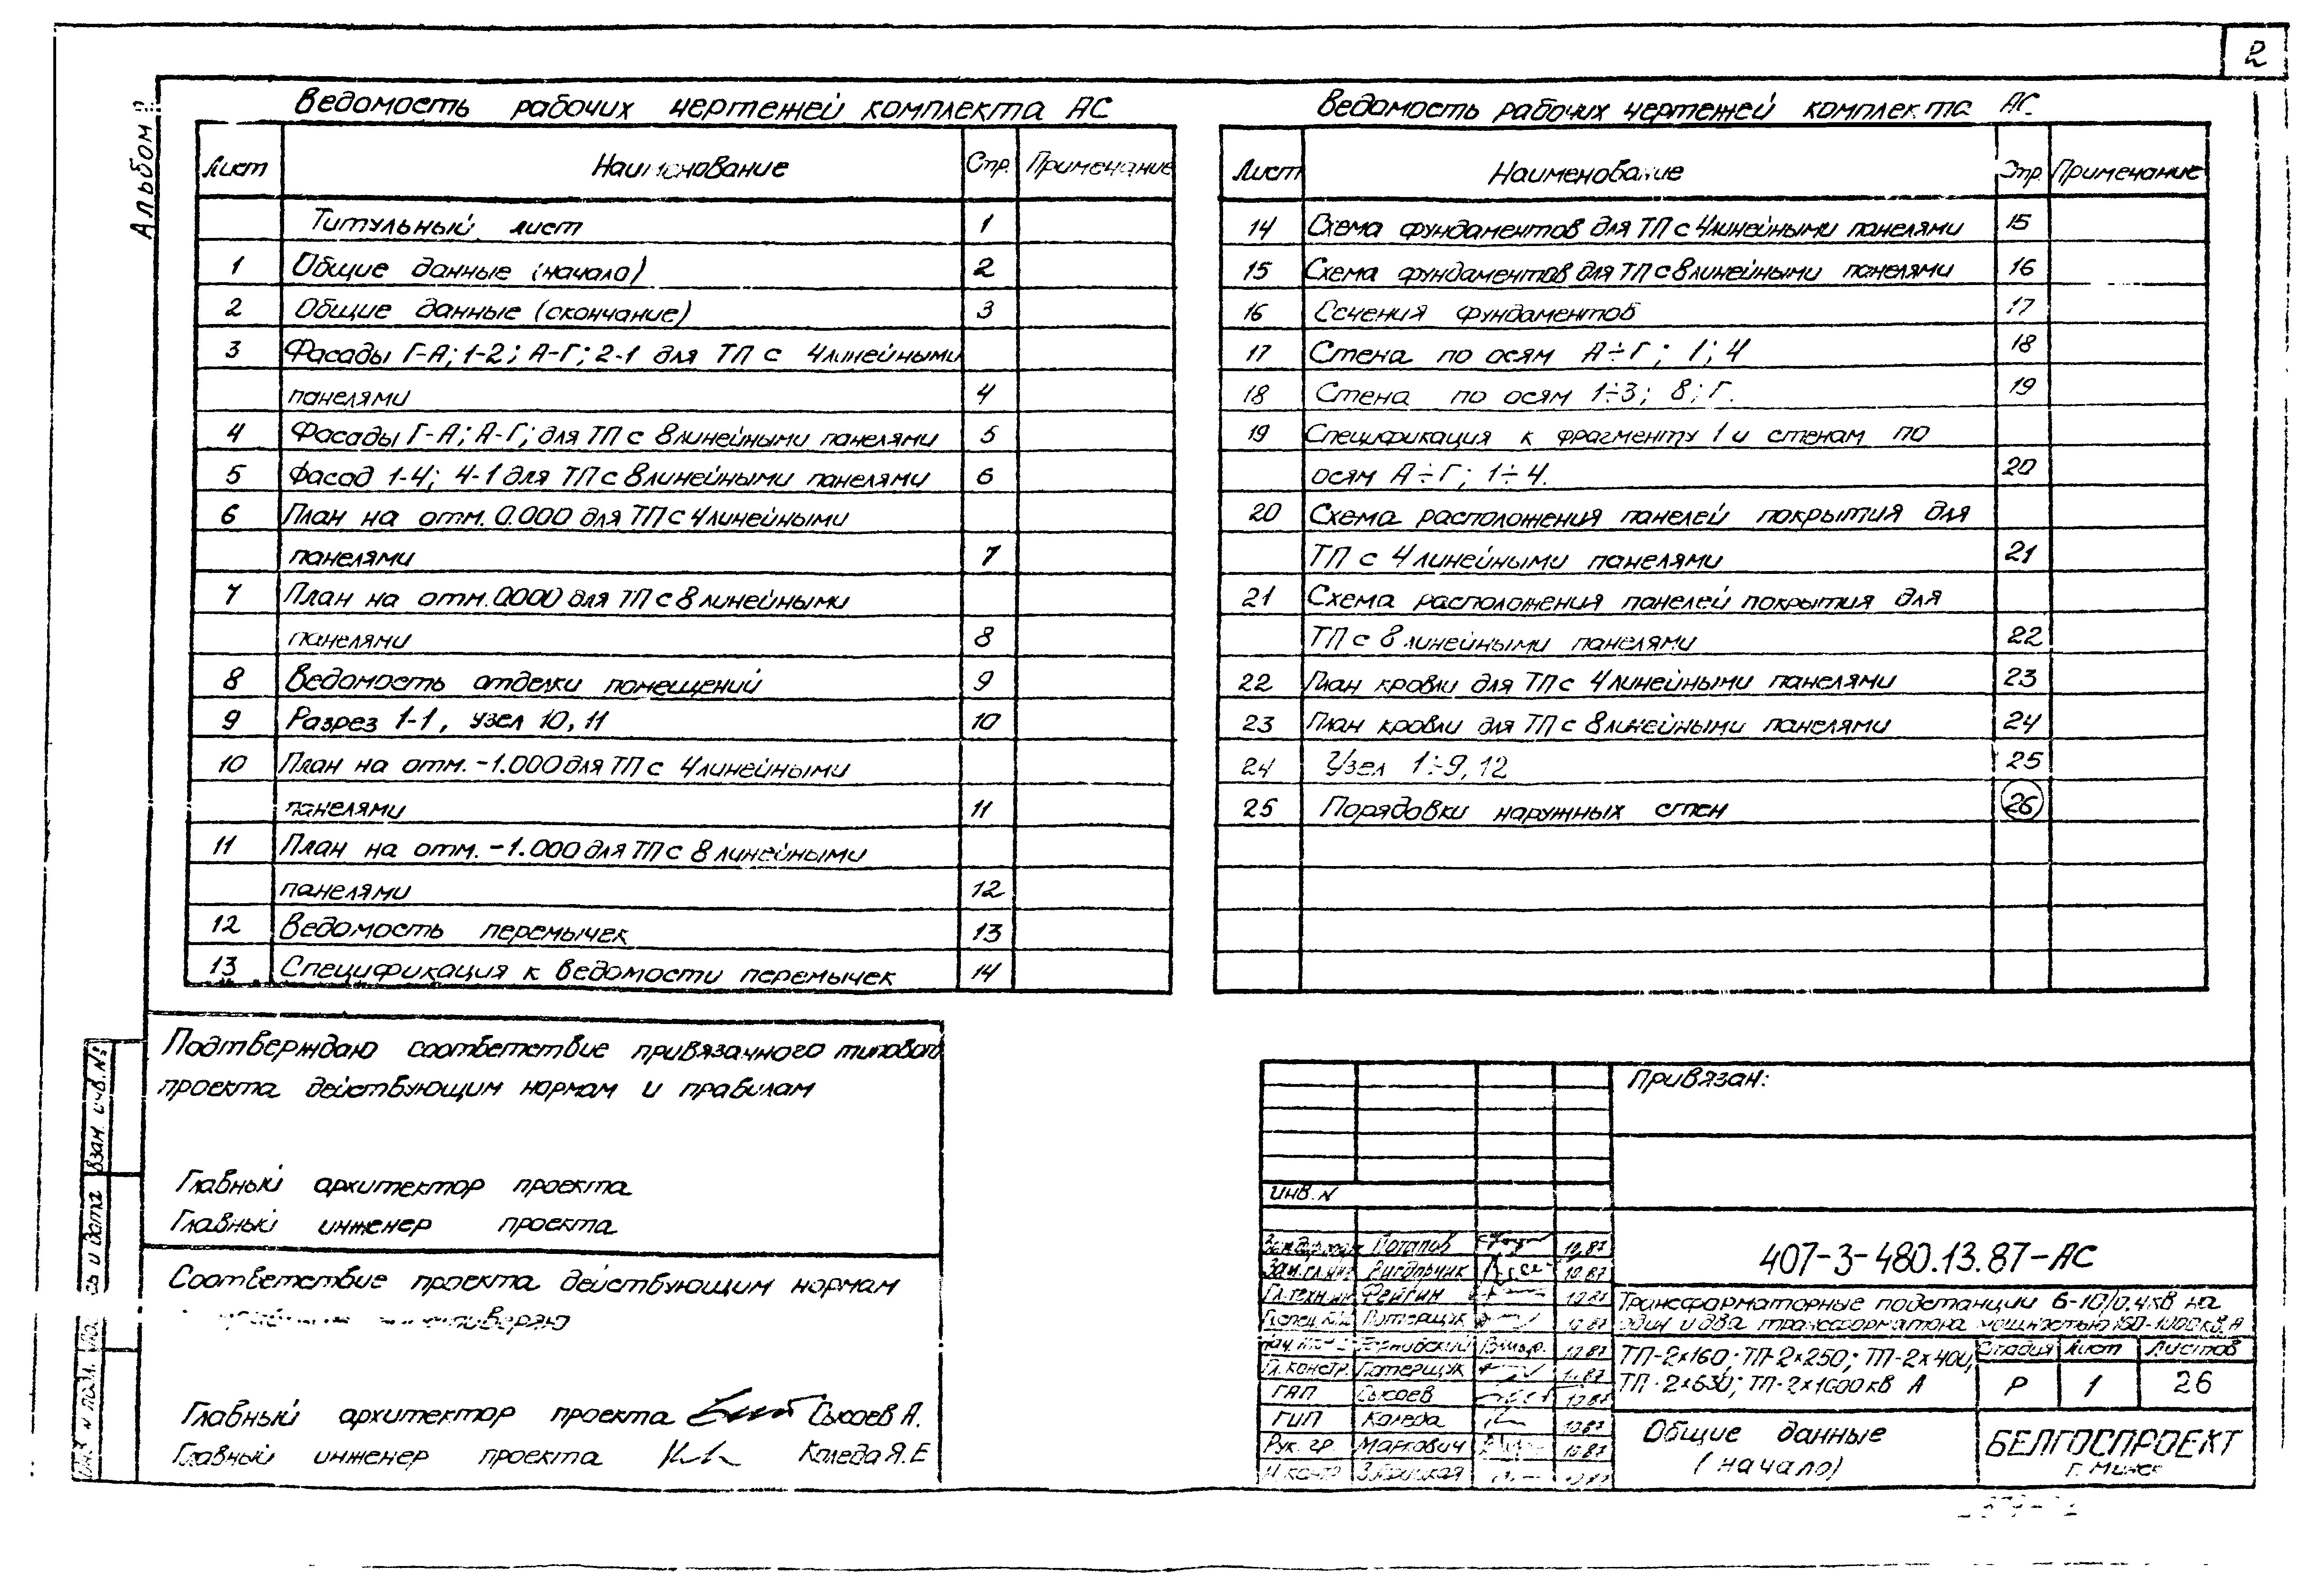 2
Альбом 2
Ведомость рабочих чертежей комплекта АС
Лист Наименование Стр. Примечание
Титульный лист 1
1 Общие данные (начало) 2
2 Общие данные (окончание) 3
3 Фасады Г-А; 1-2; А-Г; 2-1 для ТП с 4 линейными
панелями 4
4 Фасады Г-А; А-Г; для ТП с 8 линейными панелями 5
5 Фасад 1-4; 4-1 для ТП с 8 линейными панелями 6
6 План на отм. 0.000 для ТП с 4 линейными
панелями 7
7 План на отм. 0000 для ТП с 8 линейными
панелями 8
8 Ведомость отделки помещений 9
9 Разрез 1-1, узел 10, 11 10
10 План на отм. -1.000 для ТП с 4 линейными
панелями 11
11 План на отм. -1.000 для ТП с 8 линейными
панелями 12
12 Ведомость перемычек 13
13 Спецификация к ведомости перемычек 14
Ведомость рабочих чертежей комплекта АС
Лист Наименование Стр. Примечание
14 Схема фундаментов для ТП с 4 линейными панелями 15
15 Схема фундаментов для ТП с 8 линейными панелями 16
16 Сечения фундаментов 17
17 Стена по осям А÷Г; 1; 4 18
18 Стена по осям 1÷3; 8; Г. 19
19 Спецификация к фрагменту 1 и стенам по
осям А÷Г; 1÷4. 20
20 Схема расположения панелей покрытия для
ТП с 4 линейными панелями 21
21 Схема расположения панелей покрытия для
ТП с 8 линейными панелями 22
22 План кровли для ТП с 4 линейными панелями 23
23 План кровли для ТП с 8 линейными панелями 24
24 Узел 1÷9, 12 25
25 Порядовки наружных стен 26
Подтверждаю соответствие привязачного типового
проекта действующим нормам и правилам
Главный архитектор проекта
Главный инженер проекта
Соответствие проекта действующим нормам
Главный архитектор проекта Сысоев А.
Главный инженер проекта Коледа Я.Е
Взам. инв. №
и дата
Инв. N подл.
Привязан:
Инв. N
Потапов 10.87
10.87
Гл.техн. Фейгин 10.87
Потерщук 10.87
10.87
Гл. констр. Потерщук 10.87
ГАП Сысоев 10.87
ГИП Коледа 10.87
Рук. гр. Маркович 10.87
Н.контр 10.87
407-3-480.13.87-АС
Трансформаторные подстанции 6-10/0.4кв на
один и два трансформатора мощностью 160-1000 кв. А
ТП-2×160; ТП-2×250; ТП-2×400;
ТП-2×630; ТП-2×1000 кв А
Стадия Лист Листов
Р 1 26
Общие данные
(начало)
БЕЛГОСПРОЕКТ
г. Минск